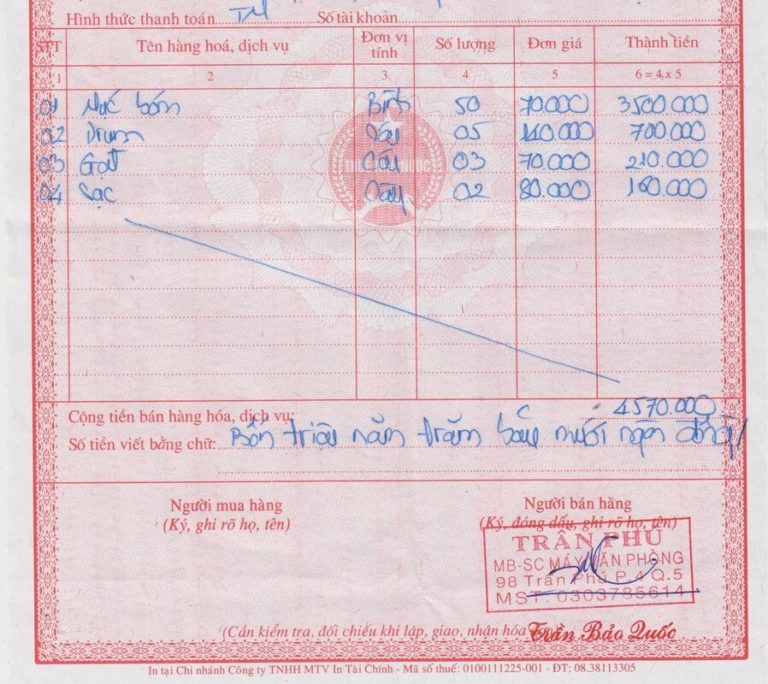 Hình thức thanh toán TM Số tài khoản
STT Tên hàng hoá, dịch vụ Đơn vị tính Số lượng Đơn giá Thành tiền
1 2 3 4 5 6 = 4 x 5
01 Mực bơm Bình 50 70.000 3500.000
02 Drum Cây 05 140.000 700.000
03 Gạt Cái 03 70.000 210.000
04 Sạc Cây 02 80.000 160.000
Cộng tiền bán hàng hóa, dịch vụ: 4570.000
Số tiền viết bằng chữ: Bốn triệu năm trăm bảy mươi ngàn đồng
Người mua hàng Người bán hàng
(Ký, ghi rõ họ, tên) (Ký, đóng dấu, ghi rõ họ, tên)
TRÂN PHÚ
MB-SC MÁY VĂN PHÒNG
98 Trần Phú P.4 Q.5
MST: 0303785614
(Cần kiểm tra, đối chiếu khi lập, giao, nhận hóa
Trần Bảo Quốc
In tại Chi nhánh Công ty TNHH MTV In Tài Chính - Mã số thuế: 0100111225-001 - ĐT: 08.38113305